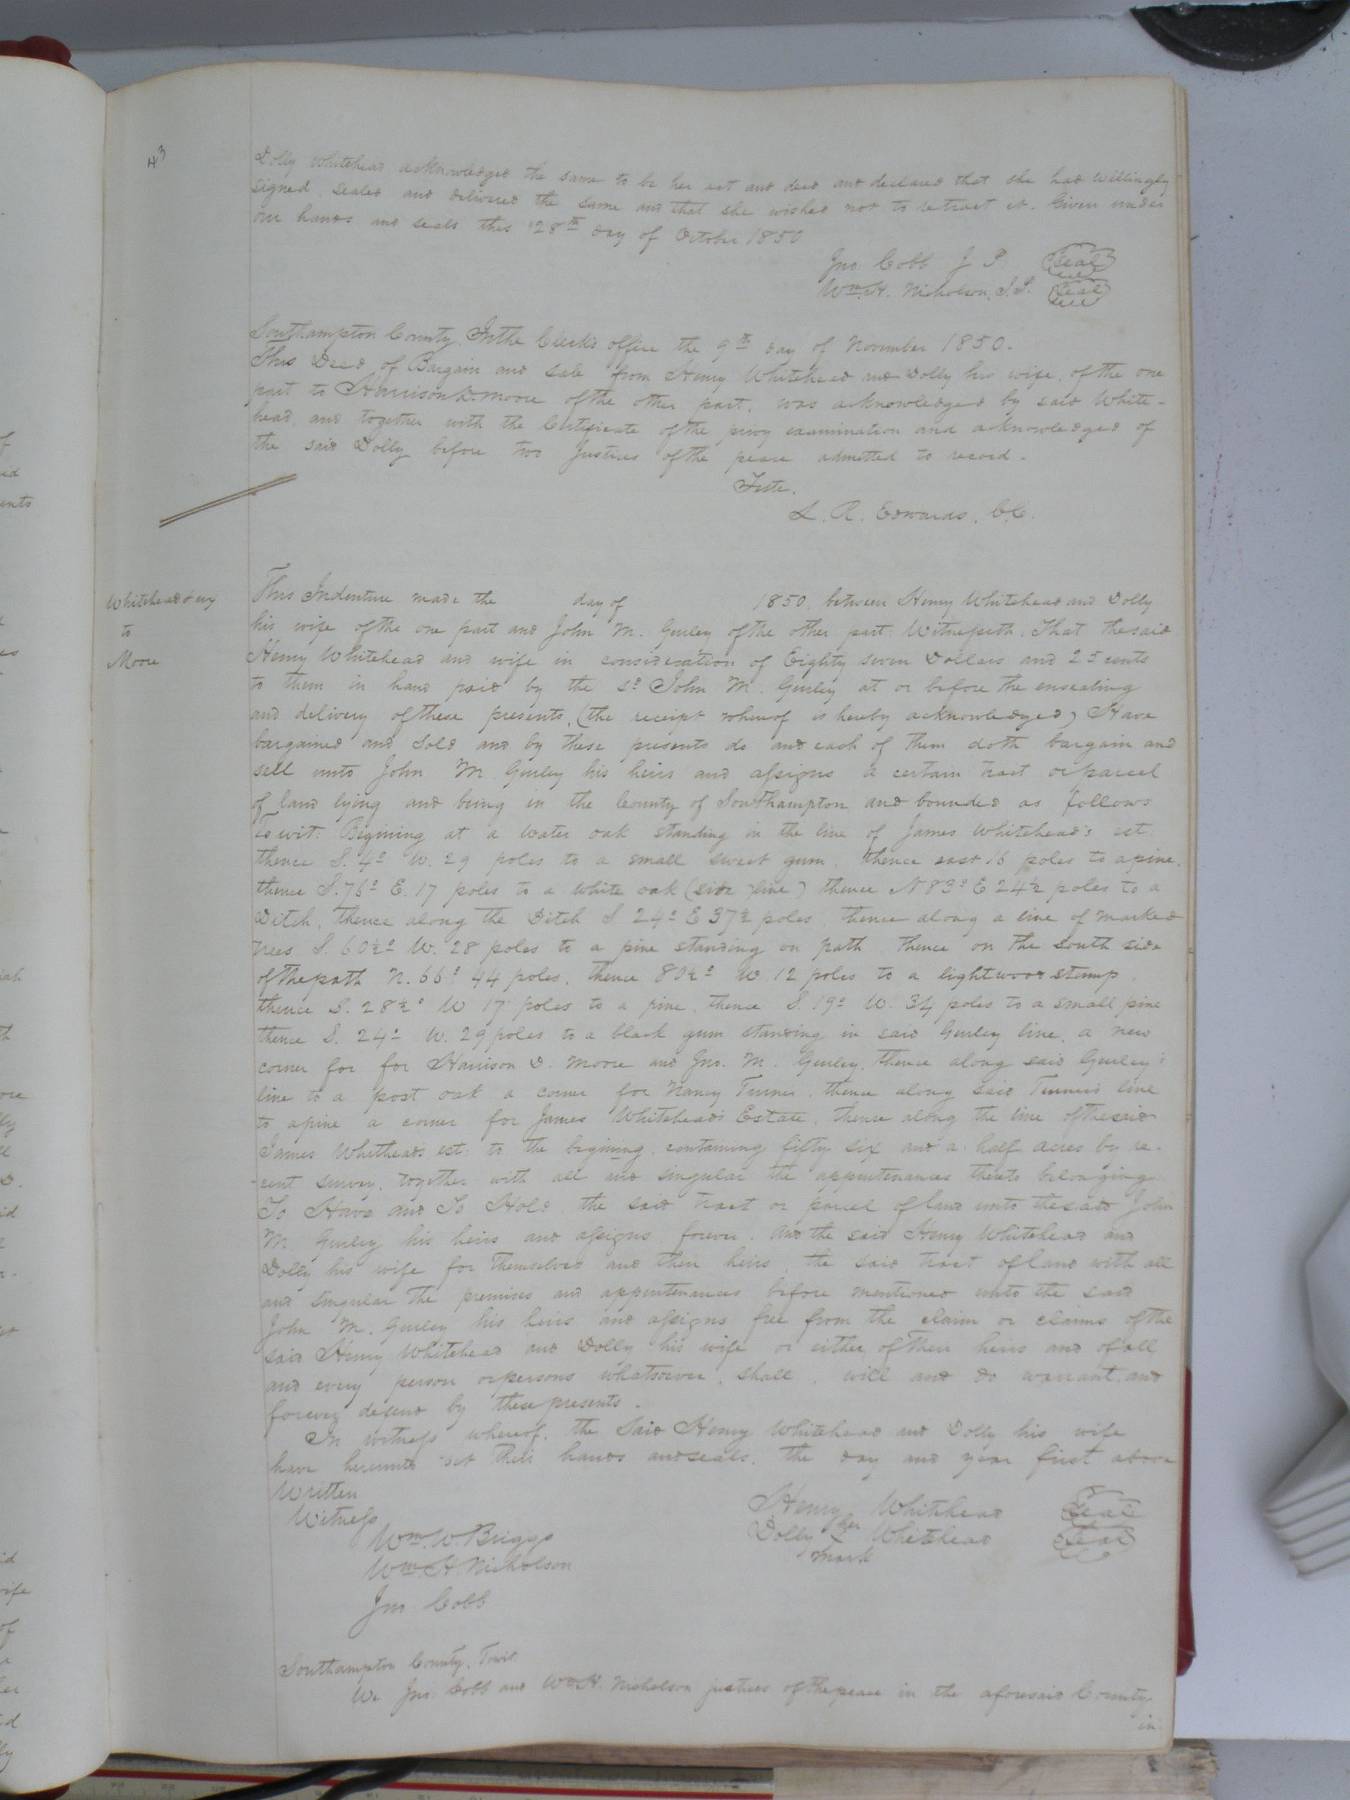 43
Dolly Whitehead acknowledged the same to be her act and deed and declared that she had willingly
signed, sealed and delivered the same and that she wished not to retract it. Given under
our hands and seals this 28th day of October 1850
Jno. Cobb J P. Seal
Wm. H. Nicholson, J.P. Seal
Southampton County In the Clerk's office the 9th day of November 1850.
This Deed of Bargain and sale from Henry Whitehead and Dolly his wife, of the one
part to Harrison D. Moore of the other part, was acknowledged by said White-
head, and together with the Certificate of the privy examination and acknowledged of
the said Dolly before two Justices of the peace admitted to record.
Teste.
L. R. Edwards, C.C.
Whitehead & ux
to
Moore
This Indenture made the day of 1850, between Henry Whitehead and Dolly
his wife of the one part and John M. Gurley of the other part. Witnesseth. That the said
Henry Whitehead and wife in consideration of Eighty seven Dollars and 25 cents
to them in hand paid by the sd John M. Gurley at or before the ensealing
and delivery of these presents, (the receipt whereof is hereby acknowledged) Have
bargained and Sold and by these presents do and each of them doth bargain and
sell unto John M. Gurley his heirs and assigns a certain tract or parcel
of land lying and being in the County of Southampton and bounded as follows
To wit: Begining at a water oak standing in the line of James Whitehead's est.
thence S. 4° W. 29 poles to a small sweet gum, thence east 16 poles to a pine,
thence S. 76° E. 17 poles to a white oak (side line) thence N 83° E 24½ poles to a
Ditch, thence along the Ditch S 24° E 37½ poles, thence along a line of marked
trees S. 60½° W. 28 poles to a pine standing on path, thence on the south side
of the path N. 66° 44 poles, thence 80½° W. 12 poles to a lightwood stump,
thence S. 28½° W 17 poles to a pine, thence S. 19° W. 34 poles to a small pine
thence S. 24° W. 29 poles to a black gum standing in said Gurley line, a new
corner for for Harrison D. Moore and Jno. M. Gurley, thence along said Gurley's
line to a post oak a corner for Nancy Turner, thence along said Turner's line
to a pine a corner for James Whitehead's Estate, thence along the line of the said
James Whitheads est: to the begining, containing fifty six and a half acres by re-
-cent survey, together with all and singular the appurtenances thereto belonging.
To Have and To Hold, the said tract or parcel of land unto the said John
M. Gurley his heirs and assigns forever. And the said Henry Whitehead and
Dolly his wife for themselves and their heirs, the said tract of land with all
and singular the premises and appurtenances before mentioned unto the said
John M. Gurley his heirs and assigns free from the claim or claims of the
said Henry Whitehead and Dolly his wife or either of their heirs and of all
and every person or persons whatsoever, shall, will and do warrant and
forever defend by these presents.
In witness whereof, the Said Henry Whitehead and Dolly his wife
have hereunto set their hands and seals, the day and year first above
Written
Witness
Henry Whitehead Seal
Wm. W. Briggs
Dolly her Whitehead Seal
mark
Wm. H Nicholson
Jno Cobb
Southampton County, Towit
We Jno. Cobb and Wm H. Nicholson justices of the peace in the aforesaid County
in